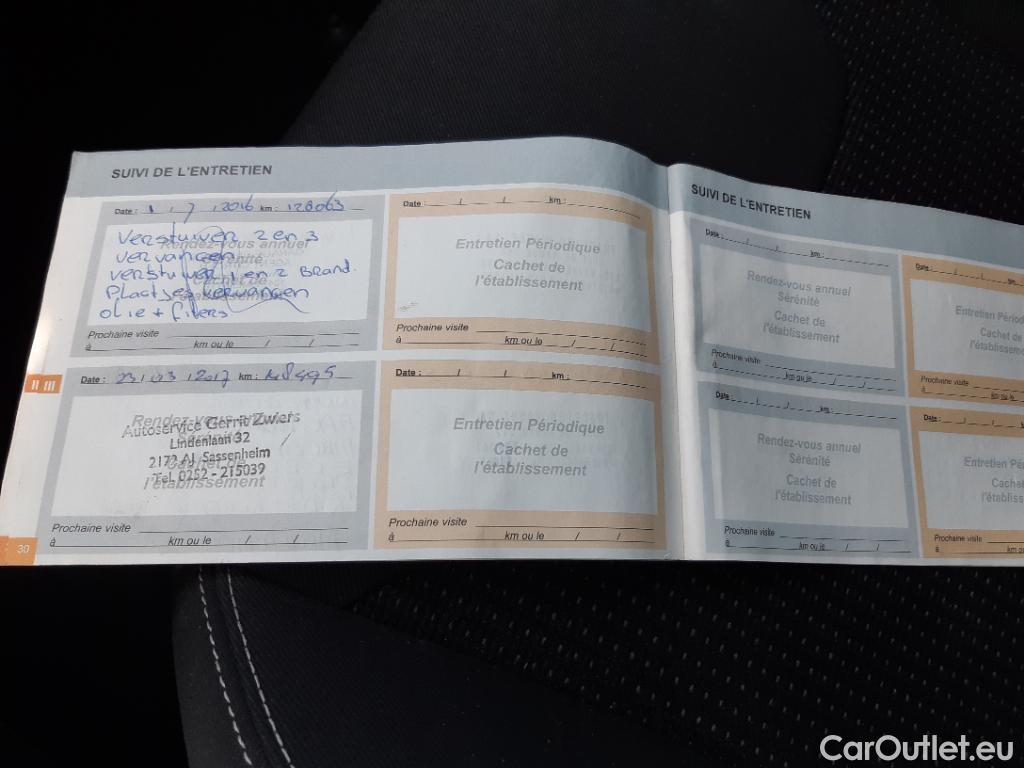 SUIVI DE L'ENTRETIEN
Date : 1 / 7 / 2016 km : 128063
Verstuiver 2 en 3
vervangen
verstuiver 1 en 2 Brand.
Plaatjes vervangen
olie + filters
Rendez-vous annuel
Sérénité
Cachet de
l'établissement
Prochaine visite
à km ou le / /
Date : / / km :
Entretien Périodique
Cachet de
l'établissement
Prochaine visite
à km ou le / /
Date : 23 / 03 / 2017 km :
Rendez-vous annuel
Autoservice Gerrit Zwiers
Lindenlaan 32
2172 AJ Sassenheim
Tel. 0252 - 215039
Cachet de
l'établissement
Prochaine visite
à km ou le / /
Date : / / km :
Entretien Périodique
Cachet de
l'établissement
Prochaine visite
à km ou le / /
II III
30
SUIVI DE L'ENTRETIEN
Date : / / km :
Rendez-vous annuel
Sérénité
Cachet de
l'établissement
Prochaine visite
à km ou le / /
Date : / / km
Entretien Périod
Cachet de
l'établissem
Prochaine visite
à km
Date : / / km :
Rendez-vous annuel
Sérénité
Cachet de
l'établissement
Prochaine visite
à km ou le / /
Date : / /
Entretien Pé
Cachet
l'établiss
Prochaine visite
à km
CarOutlet.eu